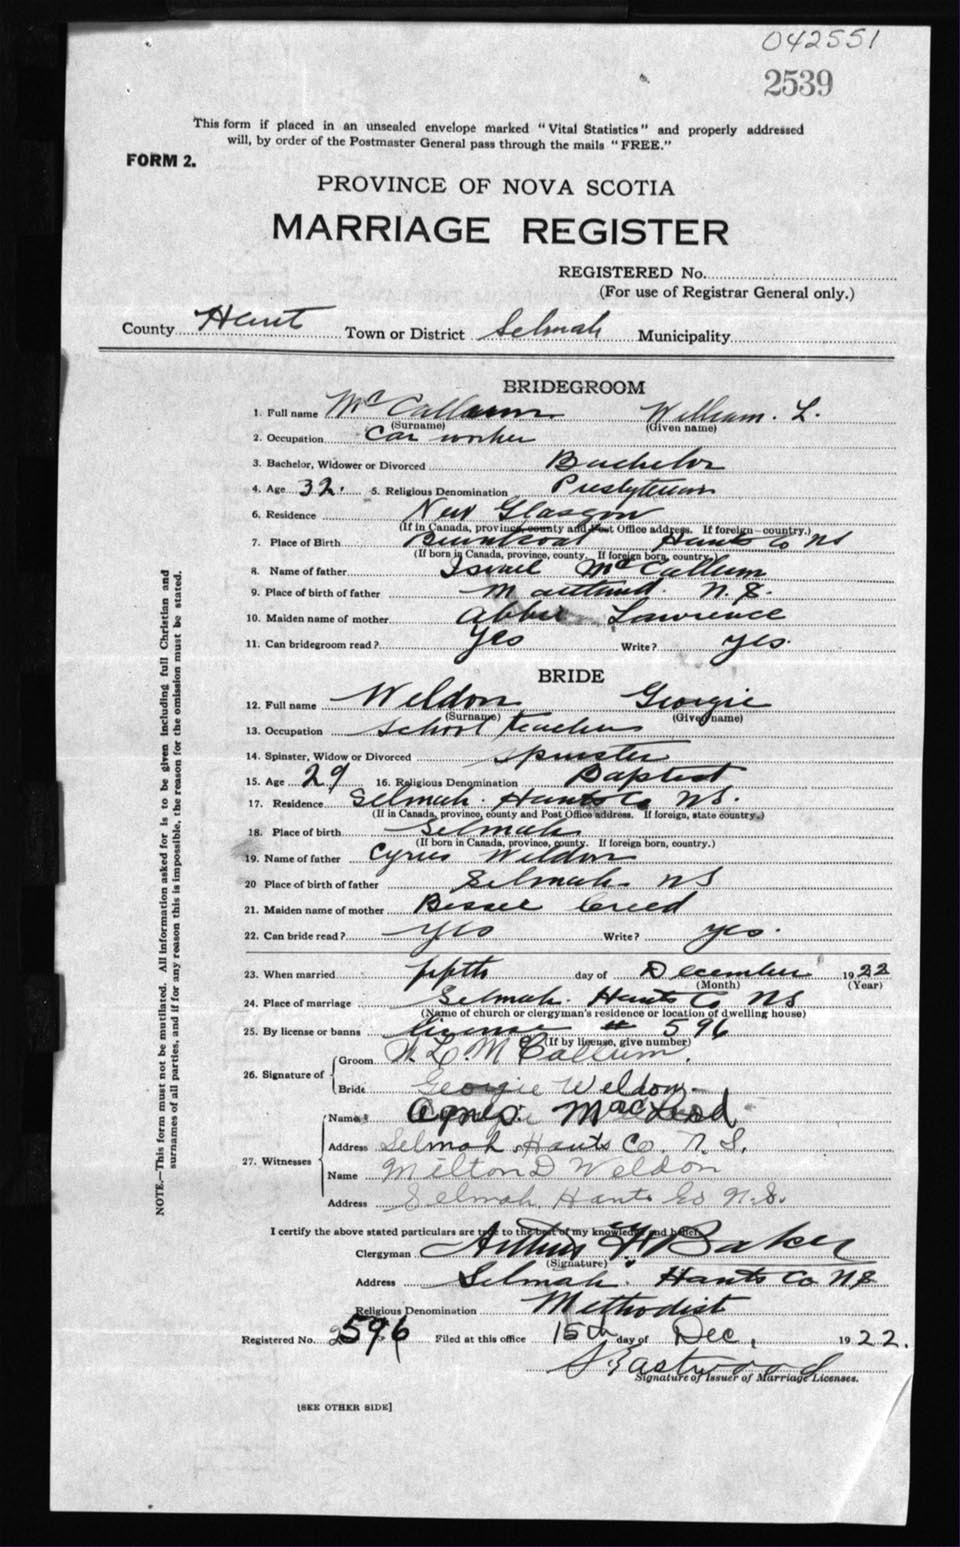 042551
2539
This form if placed in an unsealed envelope marked "Vital Statistics" and properly addressed
will, by order of the Postmaster General pass through the mails "FREE."
FORM 2.
PROVINCE OF NOVA SCOTIA
MARRIAGE REGISTER
REGISTERED No.
(For use of Registrar General only.)
County Hants Town or District Selmah Municipality
BRIDEGROOM
1. Full name McCallum William. L.
(Surname) (Given name)
2. Occupation Car worker
3. Bachelor, Widower or Divorced Bachelor
4. Age 32. 5. Religious Denomination Presbyterian
6. Residence New Glasgow
(If in Canada, province, county and Post Office address. If foreign—country.)
7. Place of Birth Burntcoat Hants Co NS
(If born in Canada, province, county. If foreign born, country.)
8. Name of father Israel McCallum
9. Place of birth of father Maitland. N.S.
10. Maiden name of mother Abbie Lawrence
11. Can bridegroom read? Yes Write? yes.
BRIDE
12. Full name Weldon Georgie
(Surname) (Given name)
13. Occupation School teacher
14. Spinster, Widow or Divorced Spinster
15. Age 29 16. Religious Denomination Baptist
17. Residence Selmah. Hants Co NS.
(If in Canada, province, county and Post Office address. If foreign, state country.)
18. Place of birth Selmah
(If born in Canada, province, county. If foreign born, country.)
19. Name of father Cyrus Weldon
20 Place of birth of father Selmah. NS
21. Maiden name of mother Bessie Creed
22. Can bride read? Yes Write? yes.
23. When married fifth day of December 1922
(Month) (Year)
24. Place of marriage Selmah. Hants Co NS
(Name of church or clergyman's residence or location of dwelling house)
25. By license or banns license # 596
(If by license, give number)
26. Signature of Groom W. L. McCallum.
Bride Georgie Weldon
27. Witnesses Name Agnes MacLeod
Address Selmah, Hants Co. N.S.
Name Milton D Weldon
Address Selmah Hants Co N.S.
I certify the above stated particulars are true to the best of my knowledge and belief.
Clergyman Arthur Baker
(Signature)
Address Selmah. Hants Co NS
Religious Denomination Methodist
Registered No. 2596 Filed at this office 15th day of Dec, 1922.
Eastwood
Signature of Issuer of Marriage Licenses.
[SEE OTHER SIDE]
NOTE.—This form must not be mutilated. All information asked for is to be given including full Christian and
surnames of all parties, and if for any reason this is impossible, the reason for the omission must be stated.